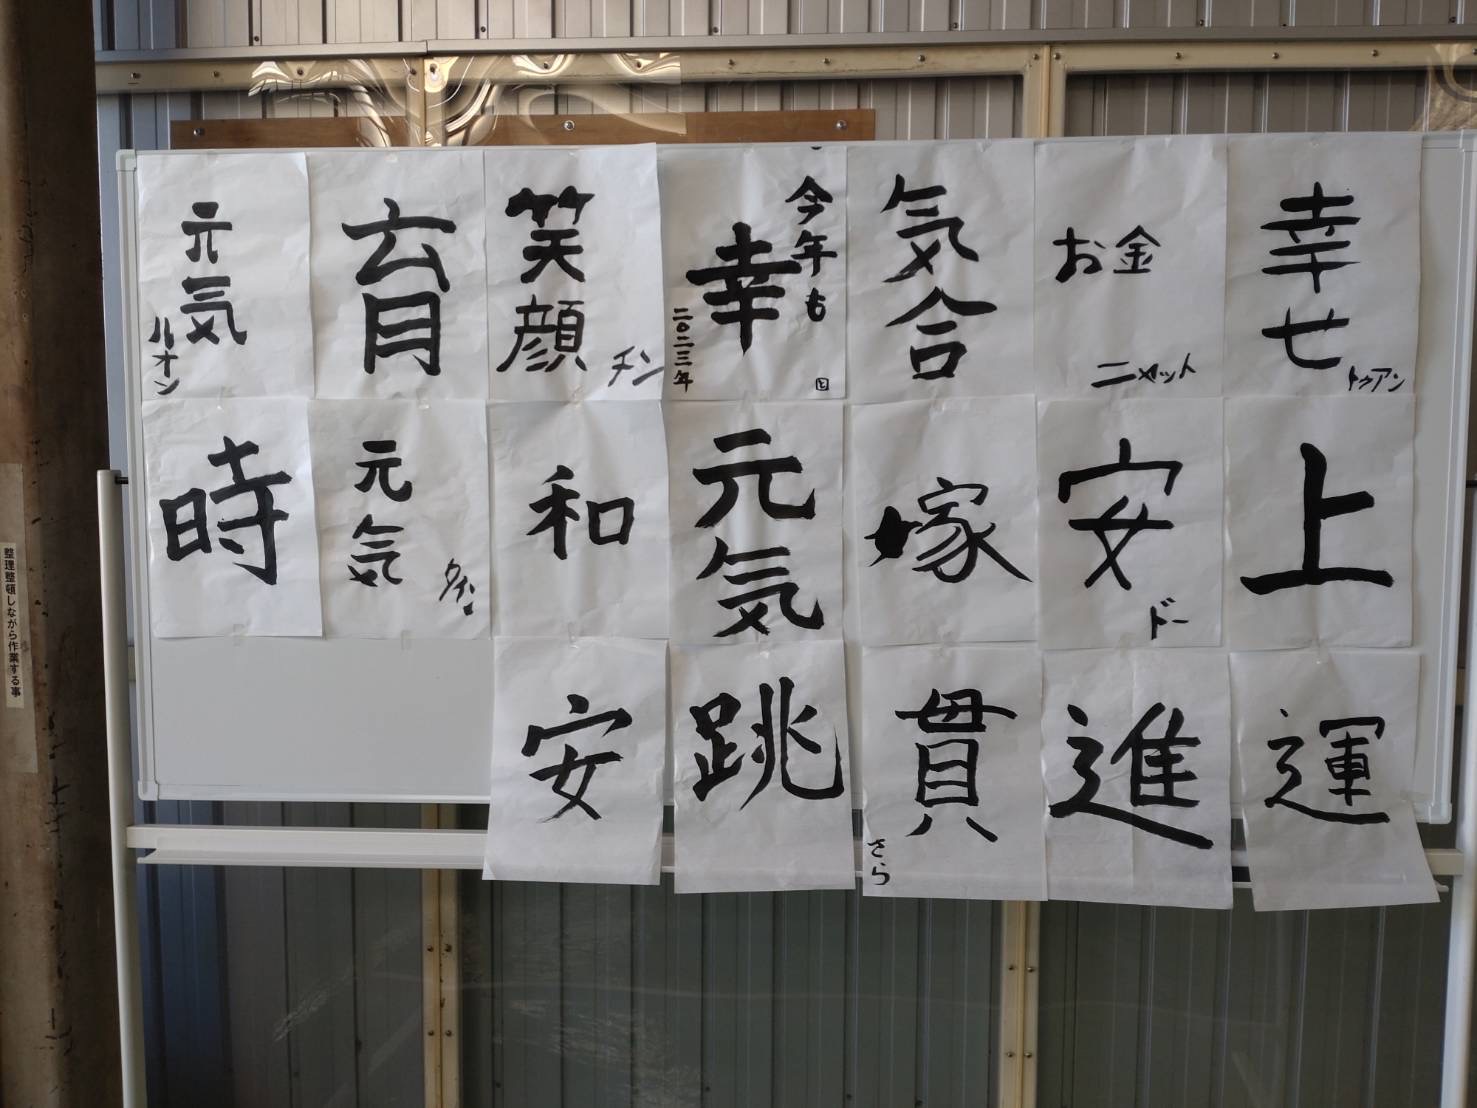 元気
ルオン
育
笑顔
チン
今年も
幸
二〇二三年
と
気合
お金
ニャット
幸せ
トゥアン
時
元気
タイン
和
元気
嫁
安
ドー
上
安
跳
貫
さら
進
運
整理整頓しながら作業する事